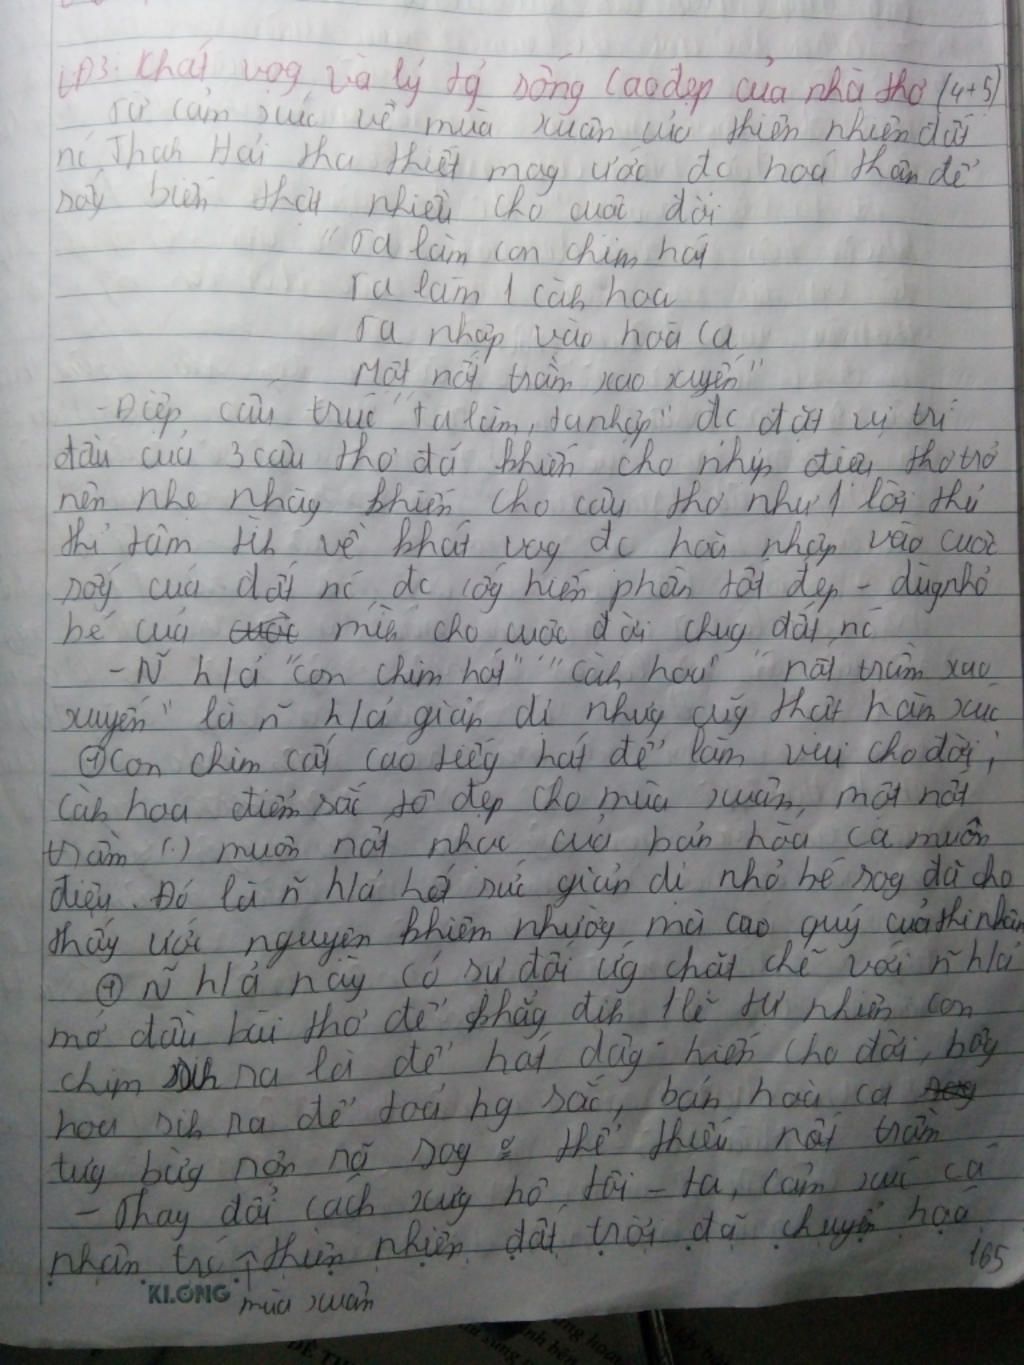 LĐ3: Khát vọg và lý tg sống cao đẹp của nhà thơ (4+5)
Từ cảm xúc về mùa xuân của thiên nhiên đất
nc Thah Hải tha thiết mog ước đc hoá thân để
sốg biến thật nhiều cho cuộc đời
"Ta làm con chim hót
Ta làm 1 càh hoa
Ta nhập vào hoà ca
Một nốt trầm xao xuyến"
- Điệp cấu trúc "ta làm, ta nhập" đc đặt vị trí
đầu của 3 câu thơ đã khiến cho nhịp điệu thơ trở
nên nhẹ nhàg khiến cho câu thơ như 1 lời thủ
thỉ tâm tìh về khát vọg đc hoà nhập vào cuộc
sốg của đất nc, đc cốg hiến phần tốt đẹp - dù nhỏ
bé của cuộc mìh cho cuộc đời chug đất nc
- N~ h/ả "con chim hót" "càh hoa" "nốt trầm xao
xuyến" là n~ h/ả giản dị nhưg cũg thật hàm xúc
(+) Con chim cất cao tiếg hát để làm vui cho đời,
càh hoa điểm sắc tô đẹp cho mùa xuân, một nốt
trầm (.) muôn nốt nhạc của bản hoà ca muôn
điệu. Đó là n~ h/ả hết sức giản dị nhỏ bé sog đã cho
thấy ước nguyện khiêm nhườg mà cao quý của thi nhân
(+) N~ h/ả này có sự đối ứg chặt chẽ với n~ h/ả
mở đầu bài thơ để khẳg địh 1 lẽ tự nhiên con
chim sih ra là để hát dâg hiến cho đời, bôg
hoa sih ra để toả hg sắc, bản hoà ca
tưg bừg rộn rã sog o thể thiếu nốt trầm
- Thay đổi cách xưg hô tôi - ta, cảm xúc cá
nhân trc ↑ thiên nhiên đất trời đã chuyển hoá
mùa xuân
165
KLONG